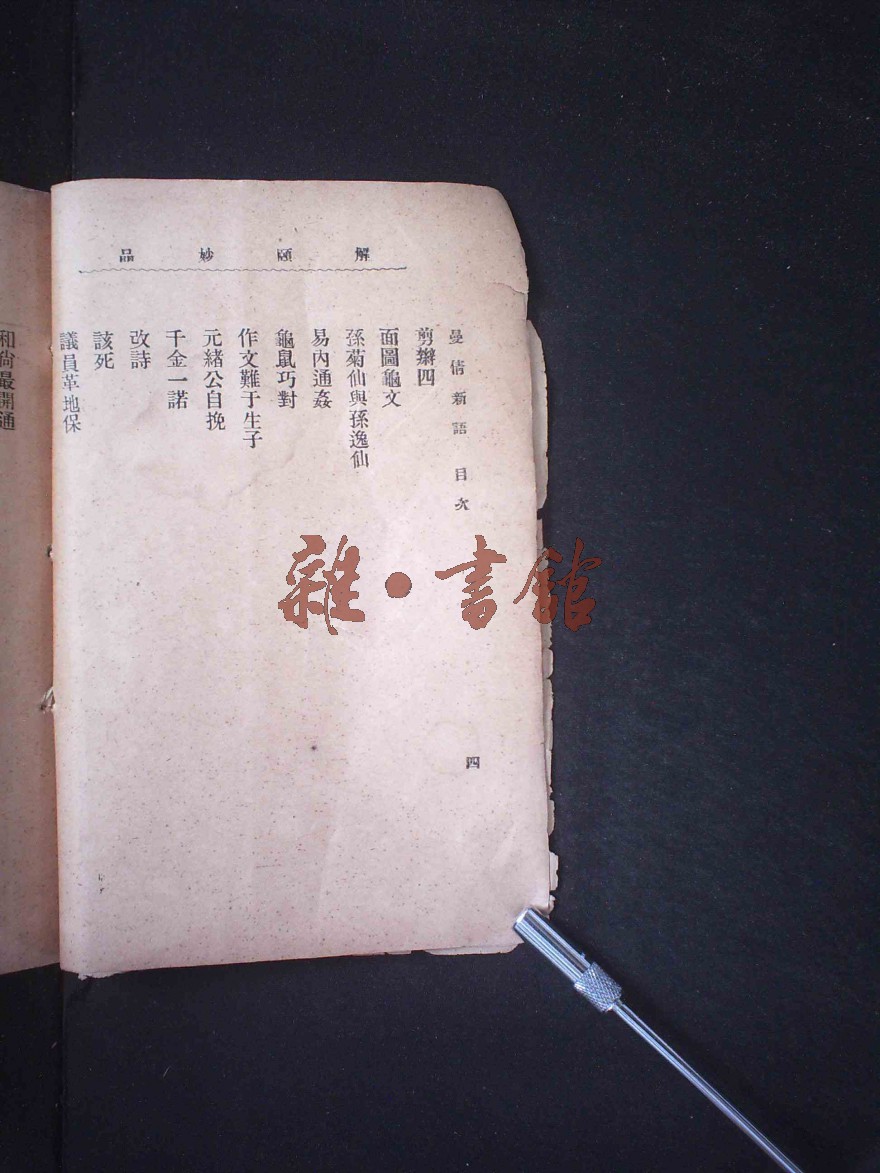 解頤妙品
曼倩新語 目次
四
剪辮四
面圖龜文
孫菊仙與孫逸仙
易內通姦
龜鼠巧對
作文難于生子
元緒公自挽
千金一諾
改詩
該死
議員革地保
和尙最開通
雜·書館